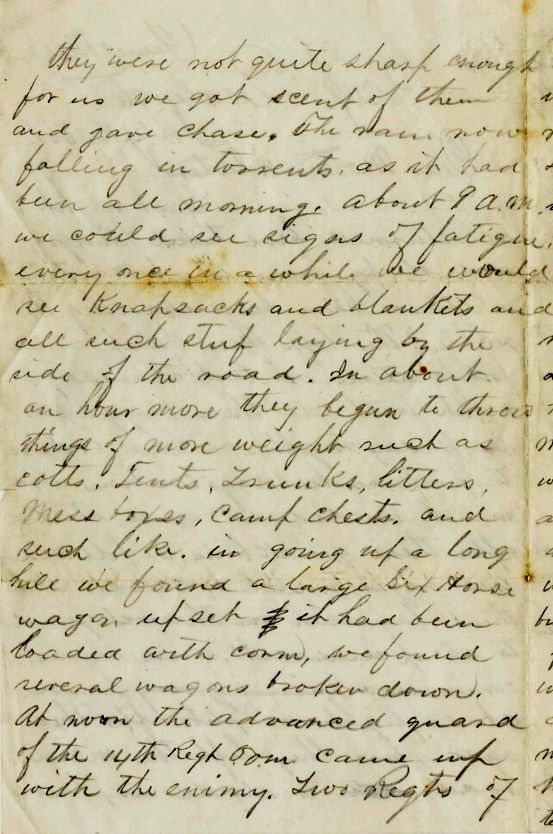 they were not quite sharp enough
for us we got scent of them
and gave chase. The rain now
falling in torrents. as it had
been all morning. about 9 a.m.
we could see signs of fatigue
every once in a while we would
see Knapsacks and blankets and
all such stuf laying by the
side of the road. In about
an hour more they begun to throw
things of more weight such as
cotts, Tents, Trunks, litters,
Mess boxes, camp chests. and
such like. in going up a long
hill we found a large Six Horse
wagon upset it had been
loaded with corn, we found
several wagons broken down.
At noon the advanced guard
of the 14th Regt came up
with the enimy. Two Regts of